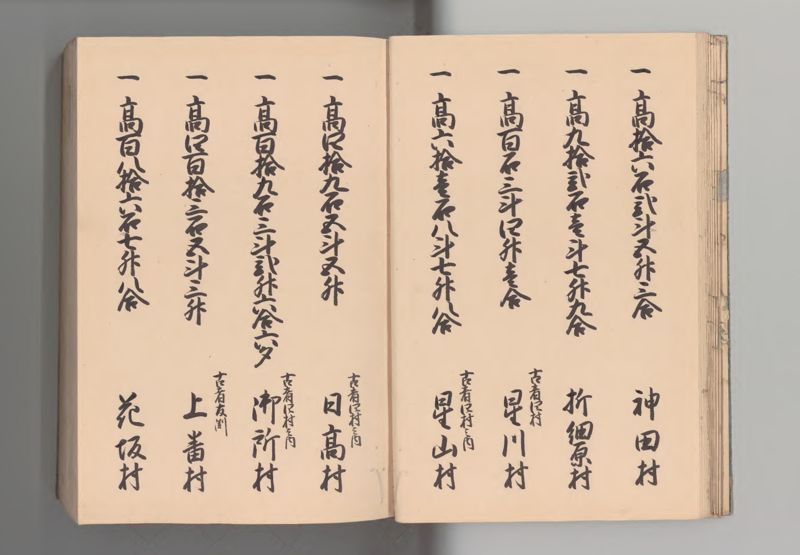 一高拾六石弐斗五升三合 神田村
一高九拾弐石壱斗七升九合 折細原村
一高百石三斗四升壱合 古者四村 星川村
一高六拾壱石八斗七升八合 古者四村之内 星山村
一高四拾九石五斗五升 古者四村之内 日高村
一高百拾九石三斗弐升六合六夕 古者四村之内 御所村
一高四百拾三石五斗三升 古者友渕 上番村
一高百八拾六石七升八合 花坂村